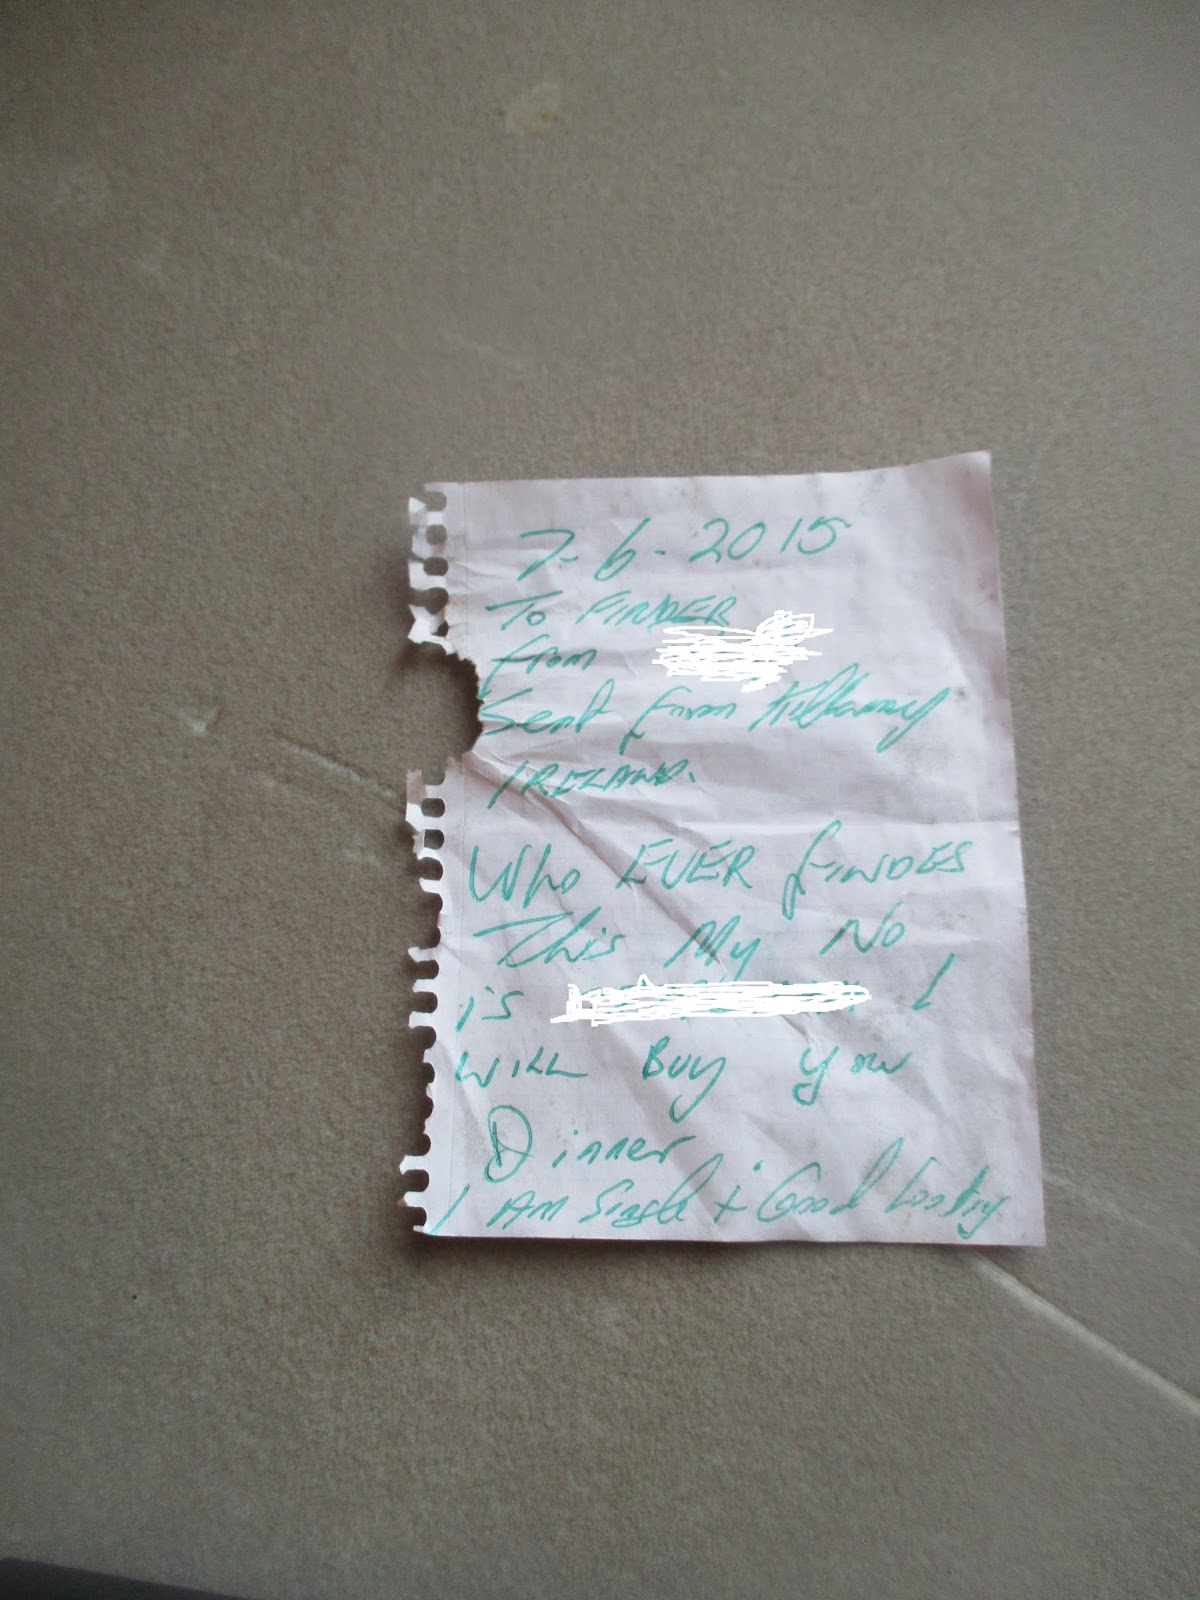 7-6-2015
To FINDER
from
Sent from Killarney
IRELAND.
Who EVER FINDES
This My No
is I
WILL Buy you
Dinner
I AM Single + Good Looking